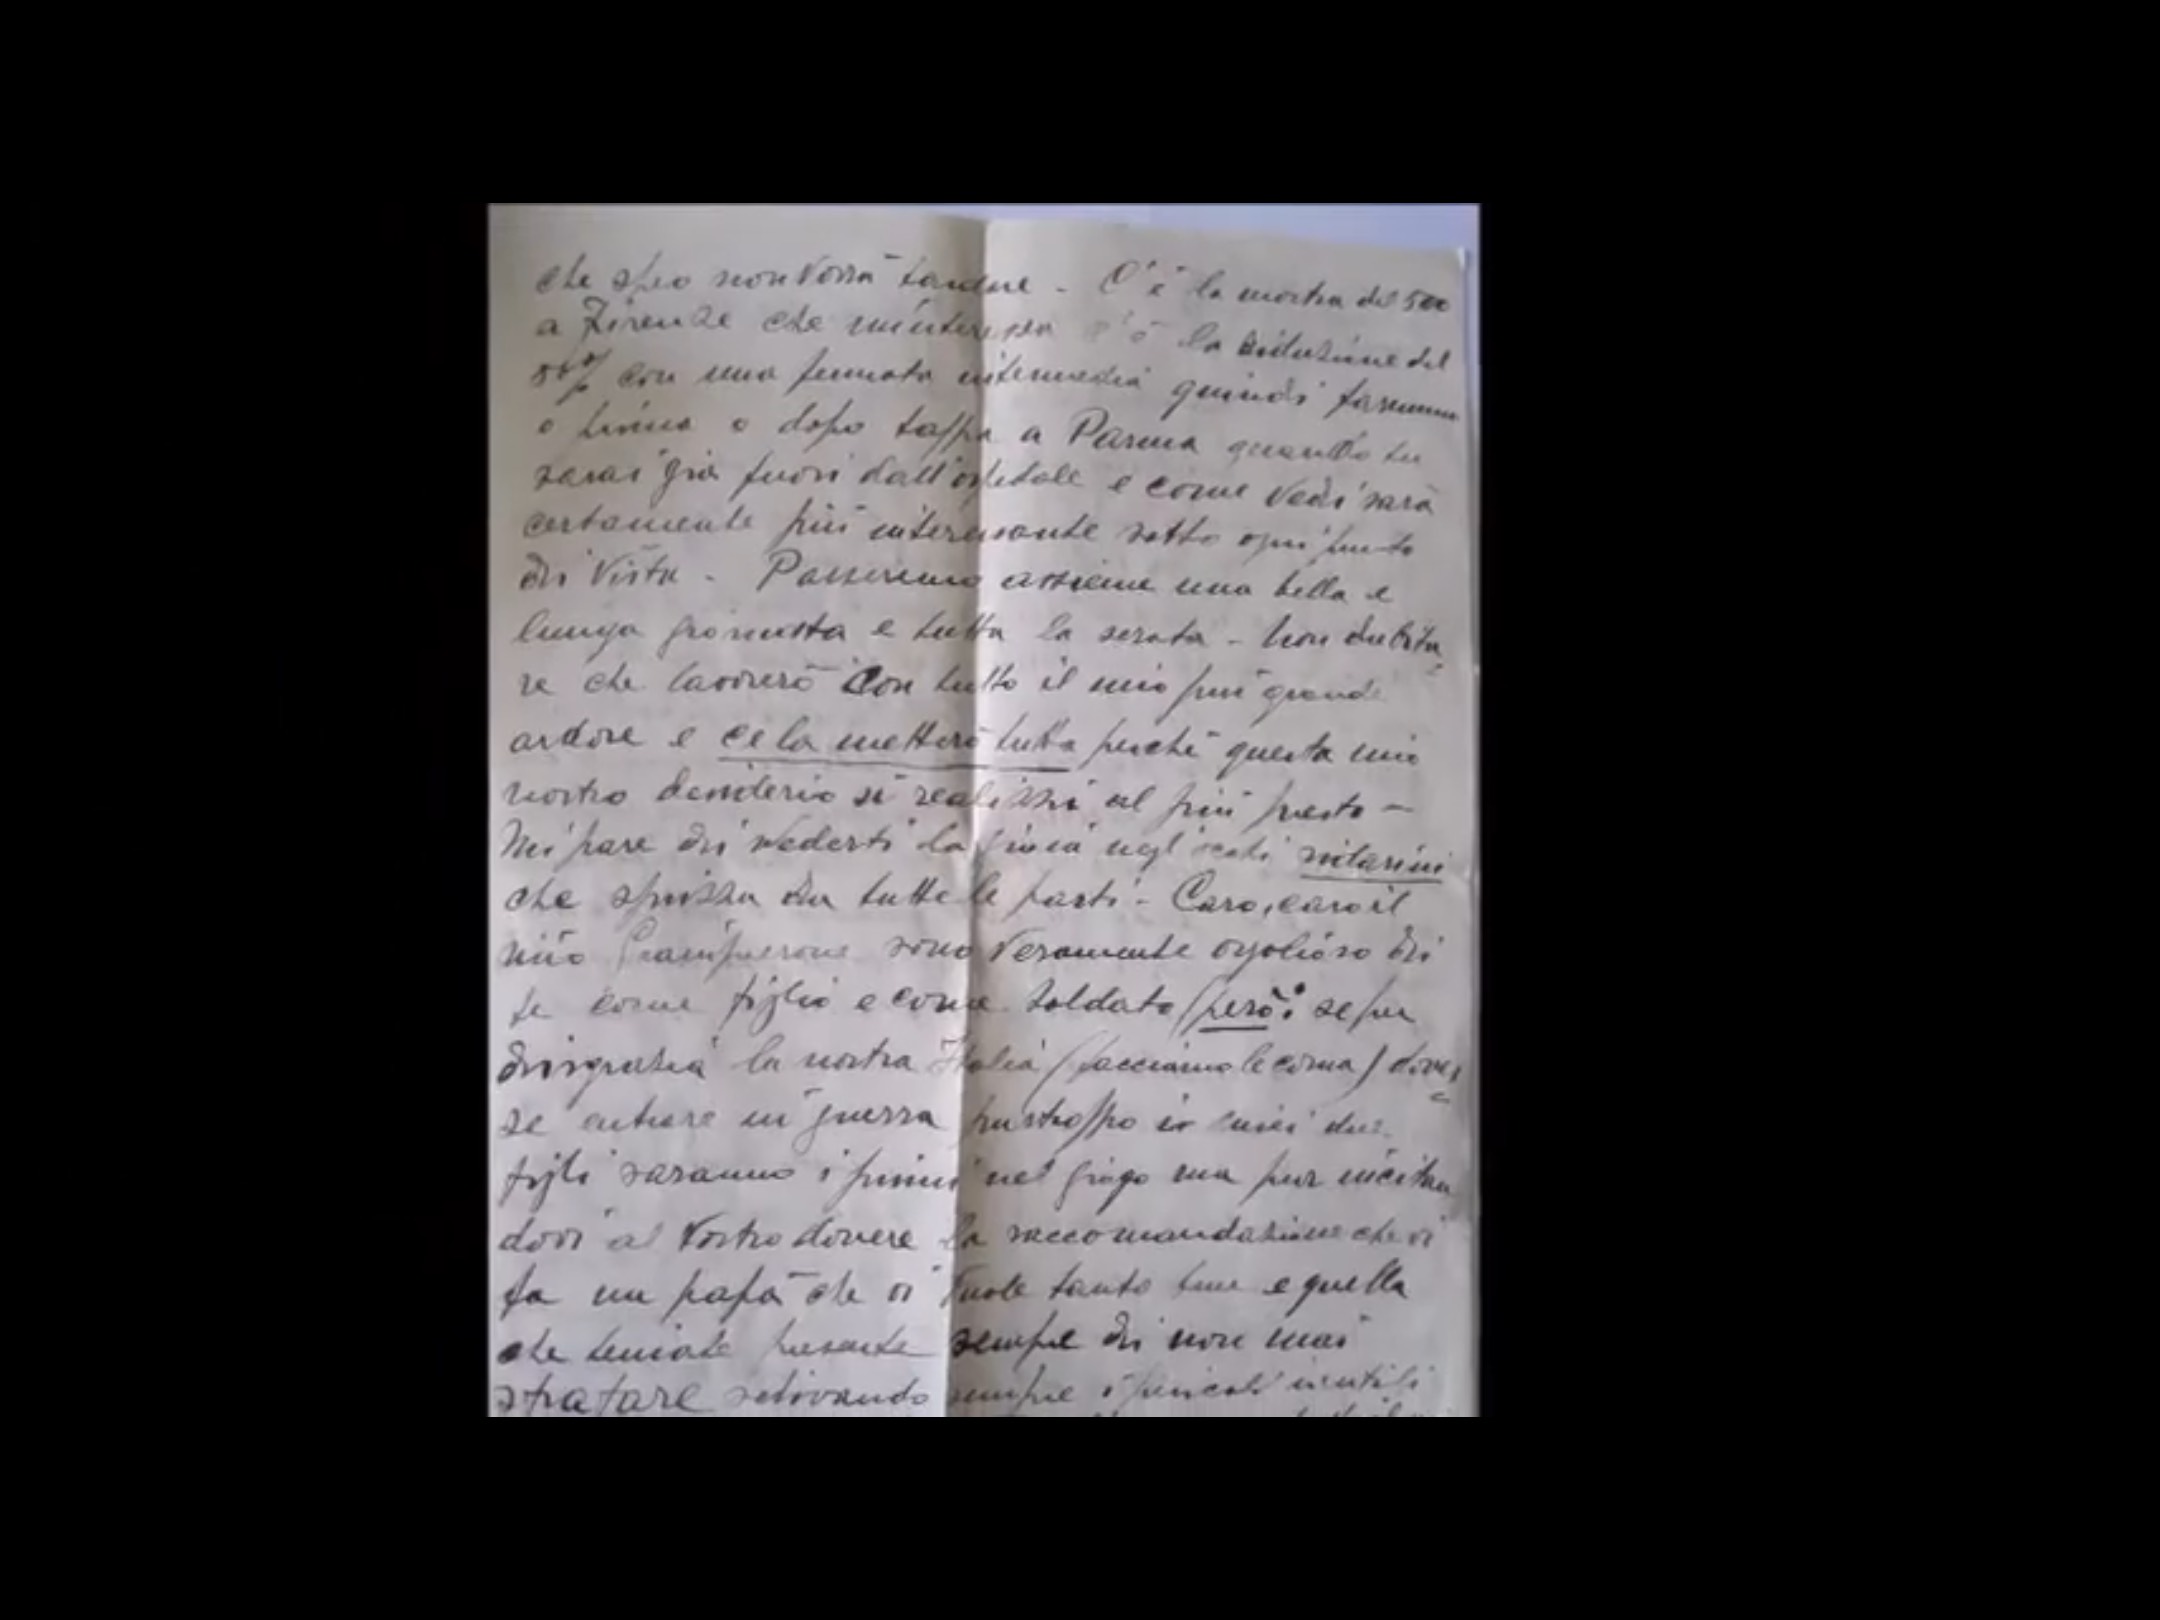 che spero non vorrà tardare - C'è la mostra del 500
a Firenze che m'interessa c'è la riduzione del
50% con una fermata intermedia quindi faremmo
o prima o dopo tappa a Parma quando tu
sarai già fuori dall'ospedale e come vedi sarà
certamente più interessante sotto ogni punto
di vista - Passeremo assieme una bella e
lunga giornata e tutta la serata - Non dubita=
re che lavorerò con tutto il mio più grande
ardore e ce la metterò tutta perchè questo mio
nostro desiderio si realizzi al più presto -
Mi pare di vederti la gioia negl'occhi
che sprizza da tutte le parti - Caro, caro il
mio Giampierone sono veramente orgolioso di
te come figlio e come soldato però: se per
disgrazia la nostra Italia (facciamo le corna) doves=
se entrare in guerra purtroppo i miei due
figli saranno i primi nel giogo ma pur incitan
dovi al vostro dovere la raccomandazione che vi
fa un papà che vi vuole tanto bene e quella
che teniate presente sempre di non mai
strafare schivando sempre i pericoli inutili